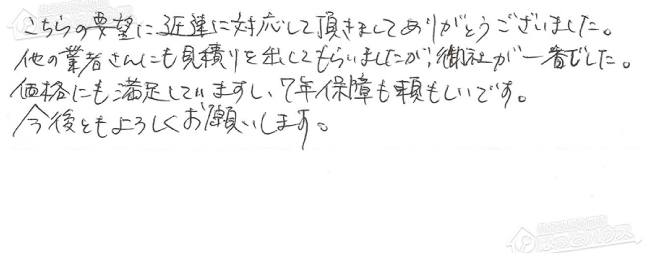 こちらの要望に迅速に対応して頂きましてありがとうございました。
他の業者さんにも見積りを出してもらいましたが、御社が一番でした。
価格にも満足していますし、7年保障も頼もしいです。
今後ともよろしくお願いします。